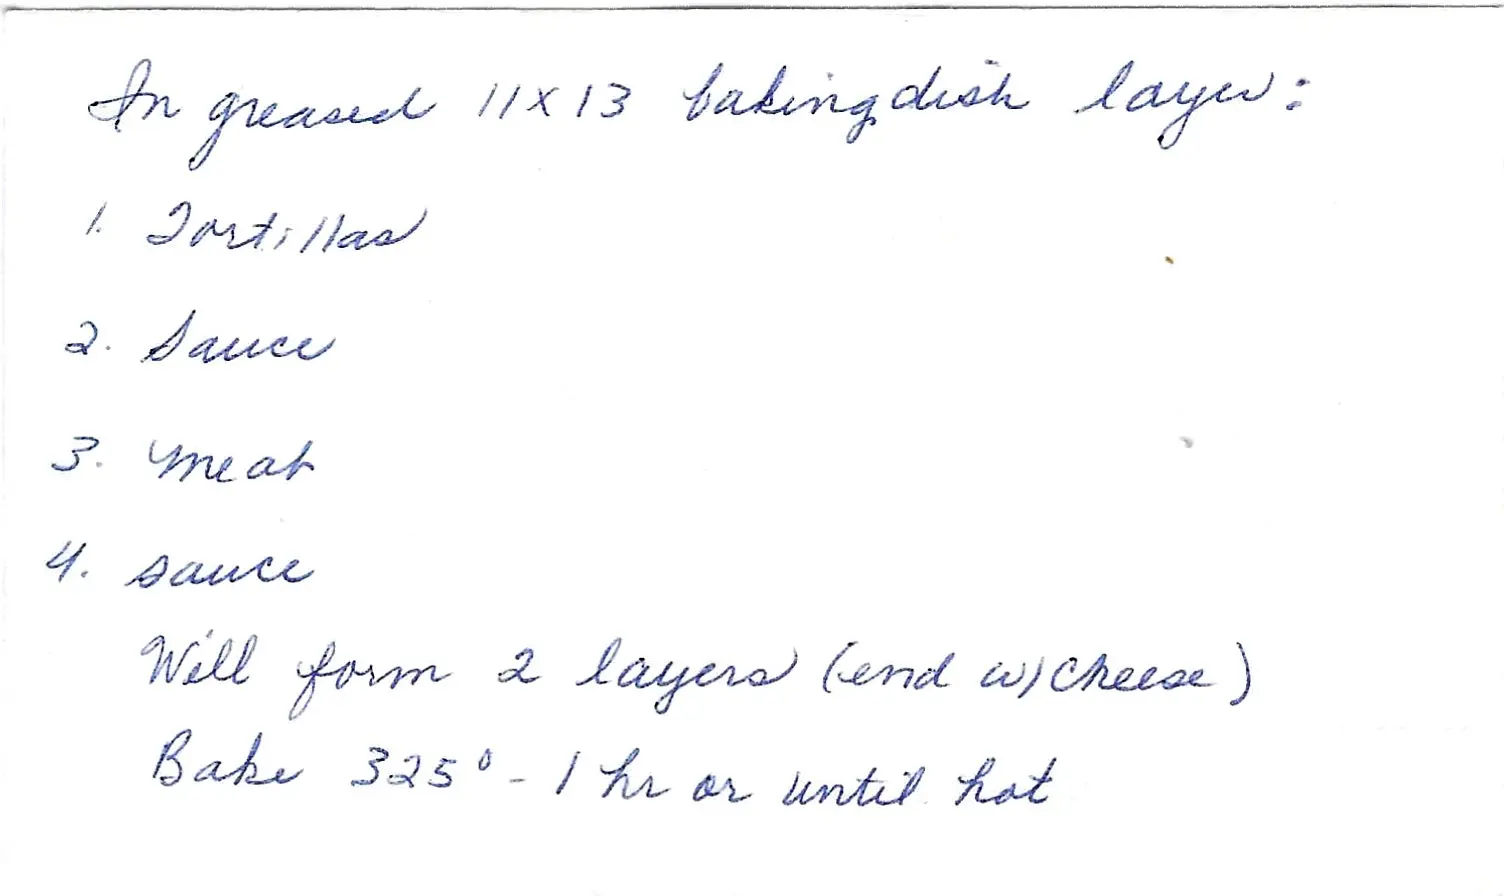 In greased 11x13 baking dish layer:
1. Tortillas
2. Sauce
3. Meat
4. sauce
Will form 2 layers (end w/ cheese)
Bake 325° - 1 hr or until hot